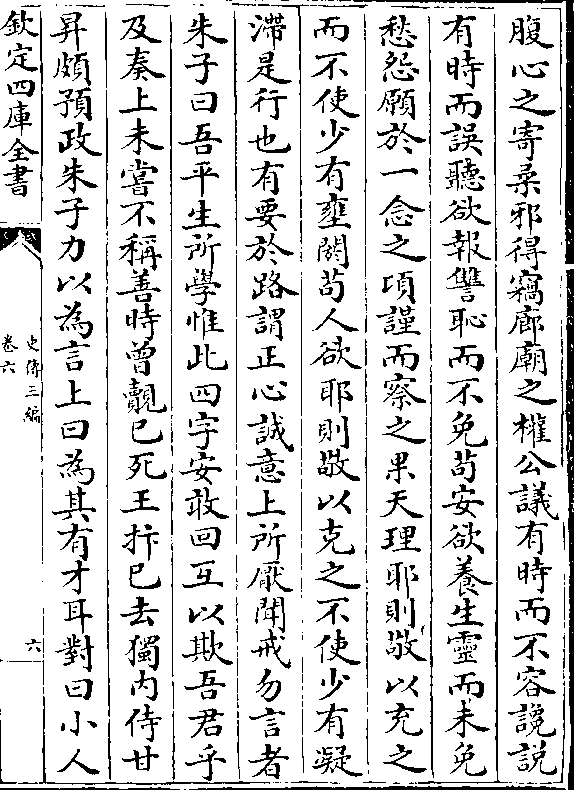 腹心之寄柔邪得竊廊廟之權公議有時而不容讒説
有時而誤聽欲報讐恥而不免苟安欲養生靈而未免
愁怨願於一念之頃謹而察之果天理耶則敬以充之
而不使少有壅閼茍人欲耶則敬以克之不使少有凝
滯是行也有要於路謂正心誠意上所厭聞戒勿言者
朱子曰吾平生所學惟此四字安敢回互以欺吾君乎
及奏上未嘗不稱善時曾覿已死王抃已去獨内侍甘
昇頗預政朱子力以為言上曰為其有才耳對曰小人
欽定四庫全書
史傳三編
卷六
六